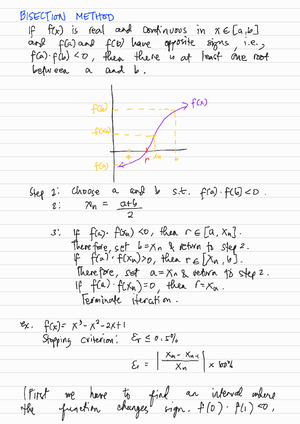 BISECTION METHOD
If f(x) is real and continuous in x ∈ [a,b]
and f(a) and f(b) have opposite signs, i.e.,
f(a)·f(b) <0, then there is at least one root
between a and b.
f(b)
f(x)
f(xn)
a r xn b
f(a)
Step 1: Choose a and b s.t. f(a)·f(b) <0.
2: xn = a+b / 2
3: If f(a)·f(xn) <0, then r ∈ [a, xn].
Therefore, set b=xn & return to step 2.
If f(a)·f(xn)>0, then r ∈ [xn, b].
Therefore, set a=xn & return to step 2.
If f(a)·f(xn)=0, then r=xn.
Terminate iteration.
ex. f(x)= x³-x²-2x+1
Stopping criterion: εr ≤ 0.5%
εr = | xn - xn-1 / xn | x 100%
(First we have to find an interval where
the function changes sign. f(0)·f(1) <0,